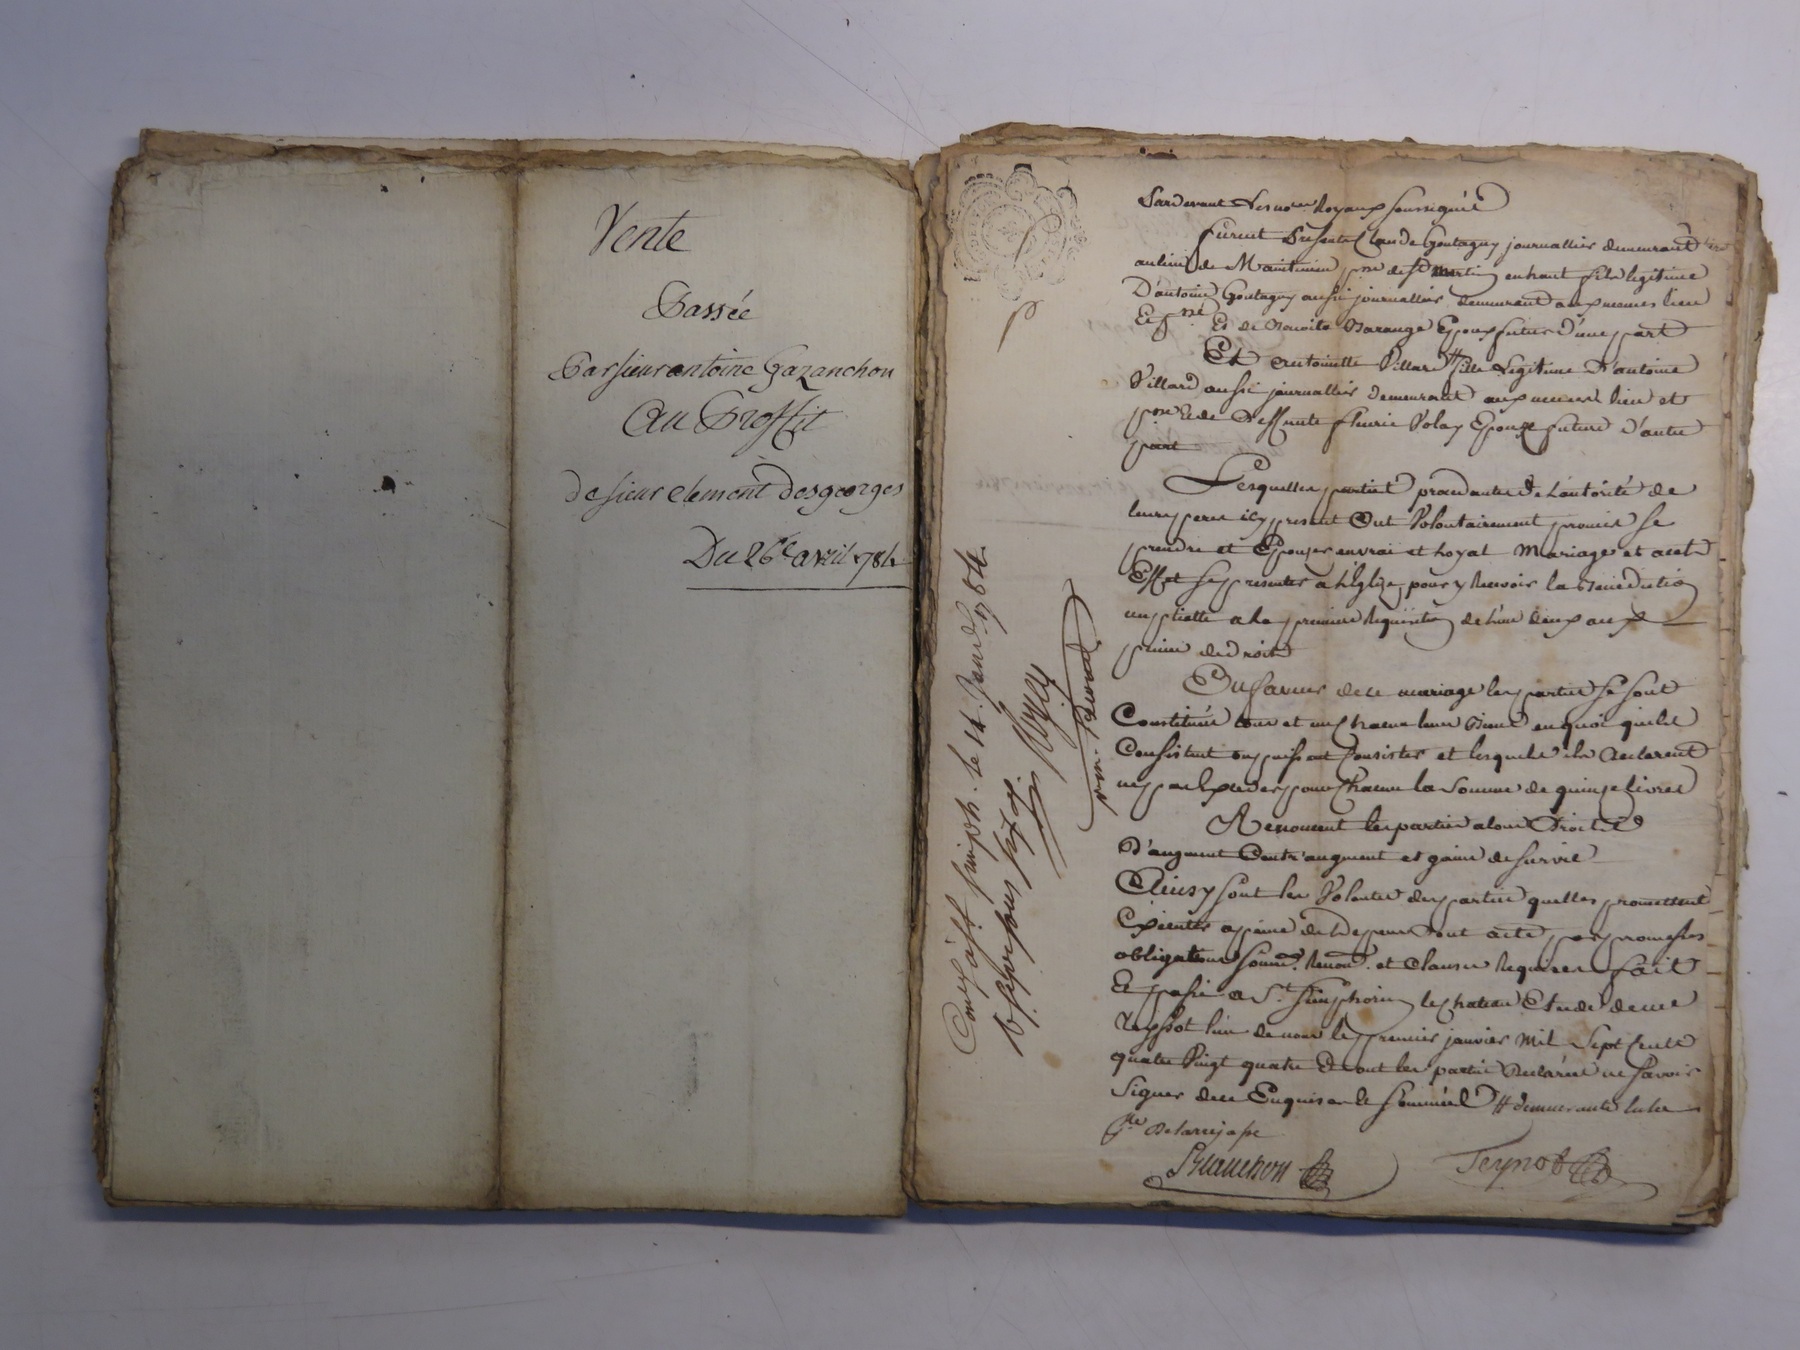 Vente
Passée
Par sieur antoine Gazanchon
Au Proffit
de sieur clement desgeorges
Du 26e avril 1784
Pardevant Les no.res Royaux soussignés
furent Présents Claude Goutagny journallier demeurant
au lieu de Maintenieu psse de St martin en haut fils legitime
D'antoine Goutagny aussi journallier demeurant aux memes lieu
Et psse Et de Benoite Barange Epoux futur d'une part
Et antoinette Villard # fille Legitime d'antoine
Villard aussi journallier demeurant aux memes lieu et
psse Et de Deffunte fleurie Volay Epouze future d'autre
part
Lesquelles parties procedantes de L'autorité de
leurs peres icy present Ont Volontairement promis se
prendre et Epouser en vrai et loyal Mariage et a cet
Effet se presenter a L'Eglize pour y Recevoir la Benediction
nuptialle a la premiere Requisition de L'un deux aux
peines de droit
En faveur de ce mariage les parties se sont
Constitués tous et un chacun leurs Biens en quoi qu'ils
Consistent ou puissent Consister et lesquels ils declarent
ne pas Exceder pour Chacun la Somme de quinze livres
Renoncent les parties a leurs Droits
D'augment Contr'augment et gains de survie
Ainsy sont les Volontés des parties quelles promettent
Executer a peine de tous Depens Dont acte par promesses
obligations soum.s Renon.s et Clauses Requises fait
Et passé a St. Simphorien le chateau Etude de me
Teyssot L'un de nous le premier janvier Mil Sept Cents
quatre Vingt quatre Et ont les parties Declarées ne savoir
Signer de ce Enquises et Sommées # demeurante
De Larrajasse
Blanchon Teynot
Con.lé à St. simph. le 14. Janv. 1784.